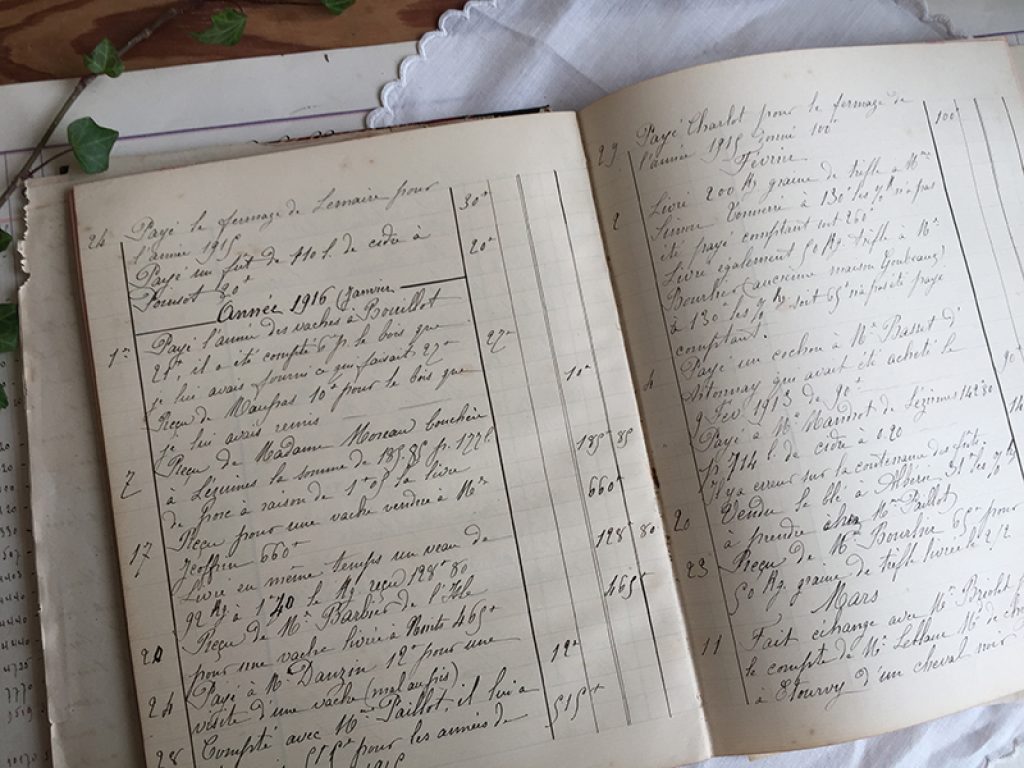 24 Payé le fermage de Lemaire pour 30f
l'année 1915
Payé un fût de 110 l. de cidre à 20f
Poinsot 20f
Année 1916 (Janvier
1er Payé l'année des vaches à Bouillot
21f, il a été compté 6f p. le bois que
je lui avais fourni ce qui faisait 27f 27f
Reçu de Maufras 10f pour le bois que 10f
je lui avais remis
7 Reçu de Madame Moreau bouchère
à Lézinnes la somme de 185.85 p. 177 l. 185f 85
de porc à raison de 1f05 la livre
17 Reçu pour une vache vendue à Mr 660f
Geoffrin 660f
Livré en même temps un veau de
92 Kg à 1f40 le Kg reçu 128f80 128 80
20 Reçu de Mr Barbier de l'Isle
pour une vache livrée à Nuits 465f 465f
24 Payé à Mr Dauzin 12f pour une 12f
visite d'une vache (mal au pis)
28 Compté avec Mr Paillot, il lui a
515f pour les années de 515f
1915
29 Payé Charlot pour le fermage de
l'année 1915 donné 100f 100f
Février
2 Livré 200 Kg graine de trèfle à Mr
Simon Tonnerre à 130f les % Kg n'a pas
été payé comptant soit 260f
Livré également 50 Kg trèfle à Mr
Bourlier (ancienne maison
à 130f les % Kg soit 65f n'a pas été payé
comptant.
4 Payé un cochon à Mr Basset d'
Artonnay qui avait été acheté le
9 Fév. 1915 de 90f 90f
Payé à Mr Mandrot de Lézinnes 142f80 14
p. 714 l. de cidre à 0.20
Il y a erreur sur la contenance des fûts.
20 Vendu le blé à Albéric 31f les % Kg
à prendre chez Mr Paillot
23 Reçu de Mr Bourlier 65f pour
50 Kg. graine de trèfle livrée le 2/2
Mars
11 Fait échange avec Mr
le compte de Mr Leblanc Md de
à Etourvy d'un cheval noir